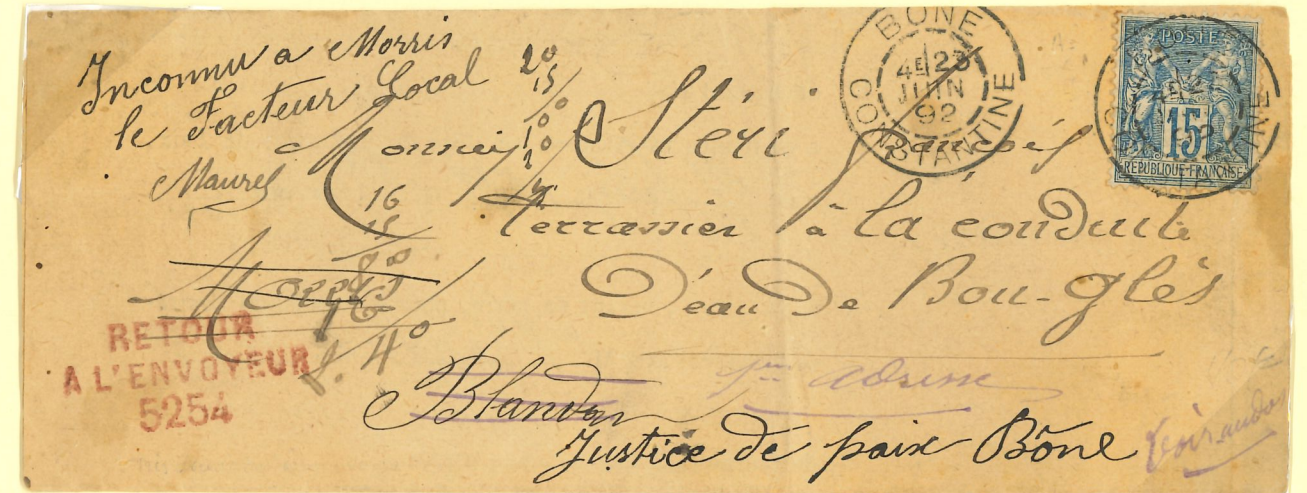 Inconnu a Morris
le Facteur Local
Maurel
BONE
4E 23
JUIN
92
CONSTANTINE
POSTE
15
REPUBLIQUE FRANÇAISE
20
15
Monsieur Stéri François
16
15
terrassier à la conduite
D'eau De Bou-Glès
Morris
RETOUR
A L'ENVOYEUR
5254
1. 40
Blandan
adresse
Justice de paix Bône
Voir au dos